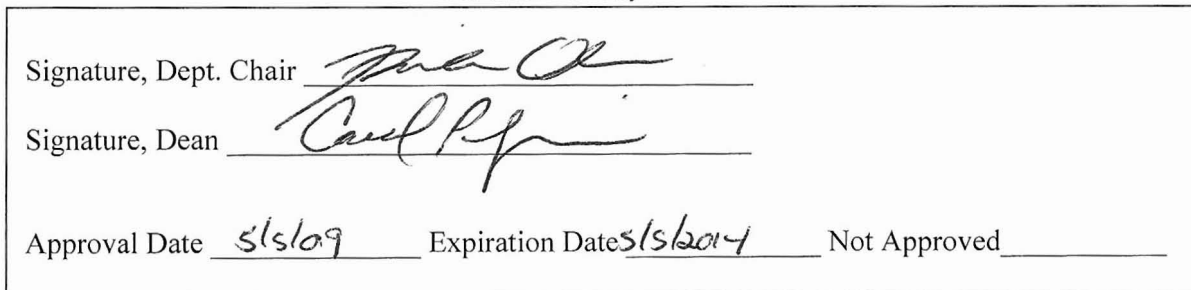 Signature, Dept. Chair
Signature, Dean Carol
Approval Date 5/5/09 Expiration Date 5/5/2014 Not Approved